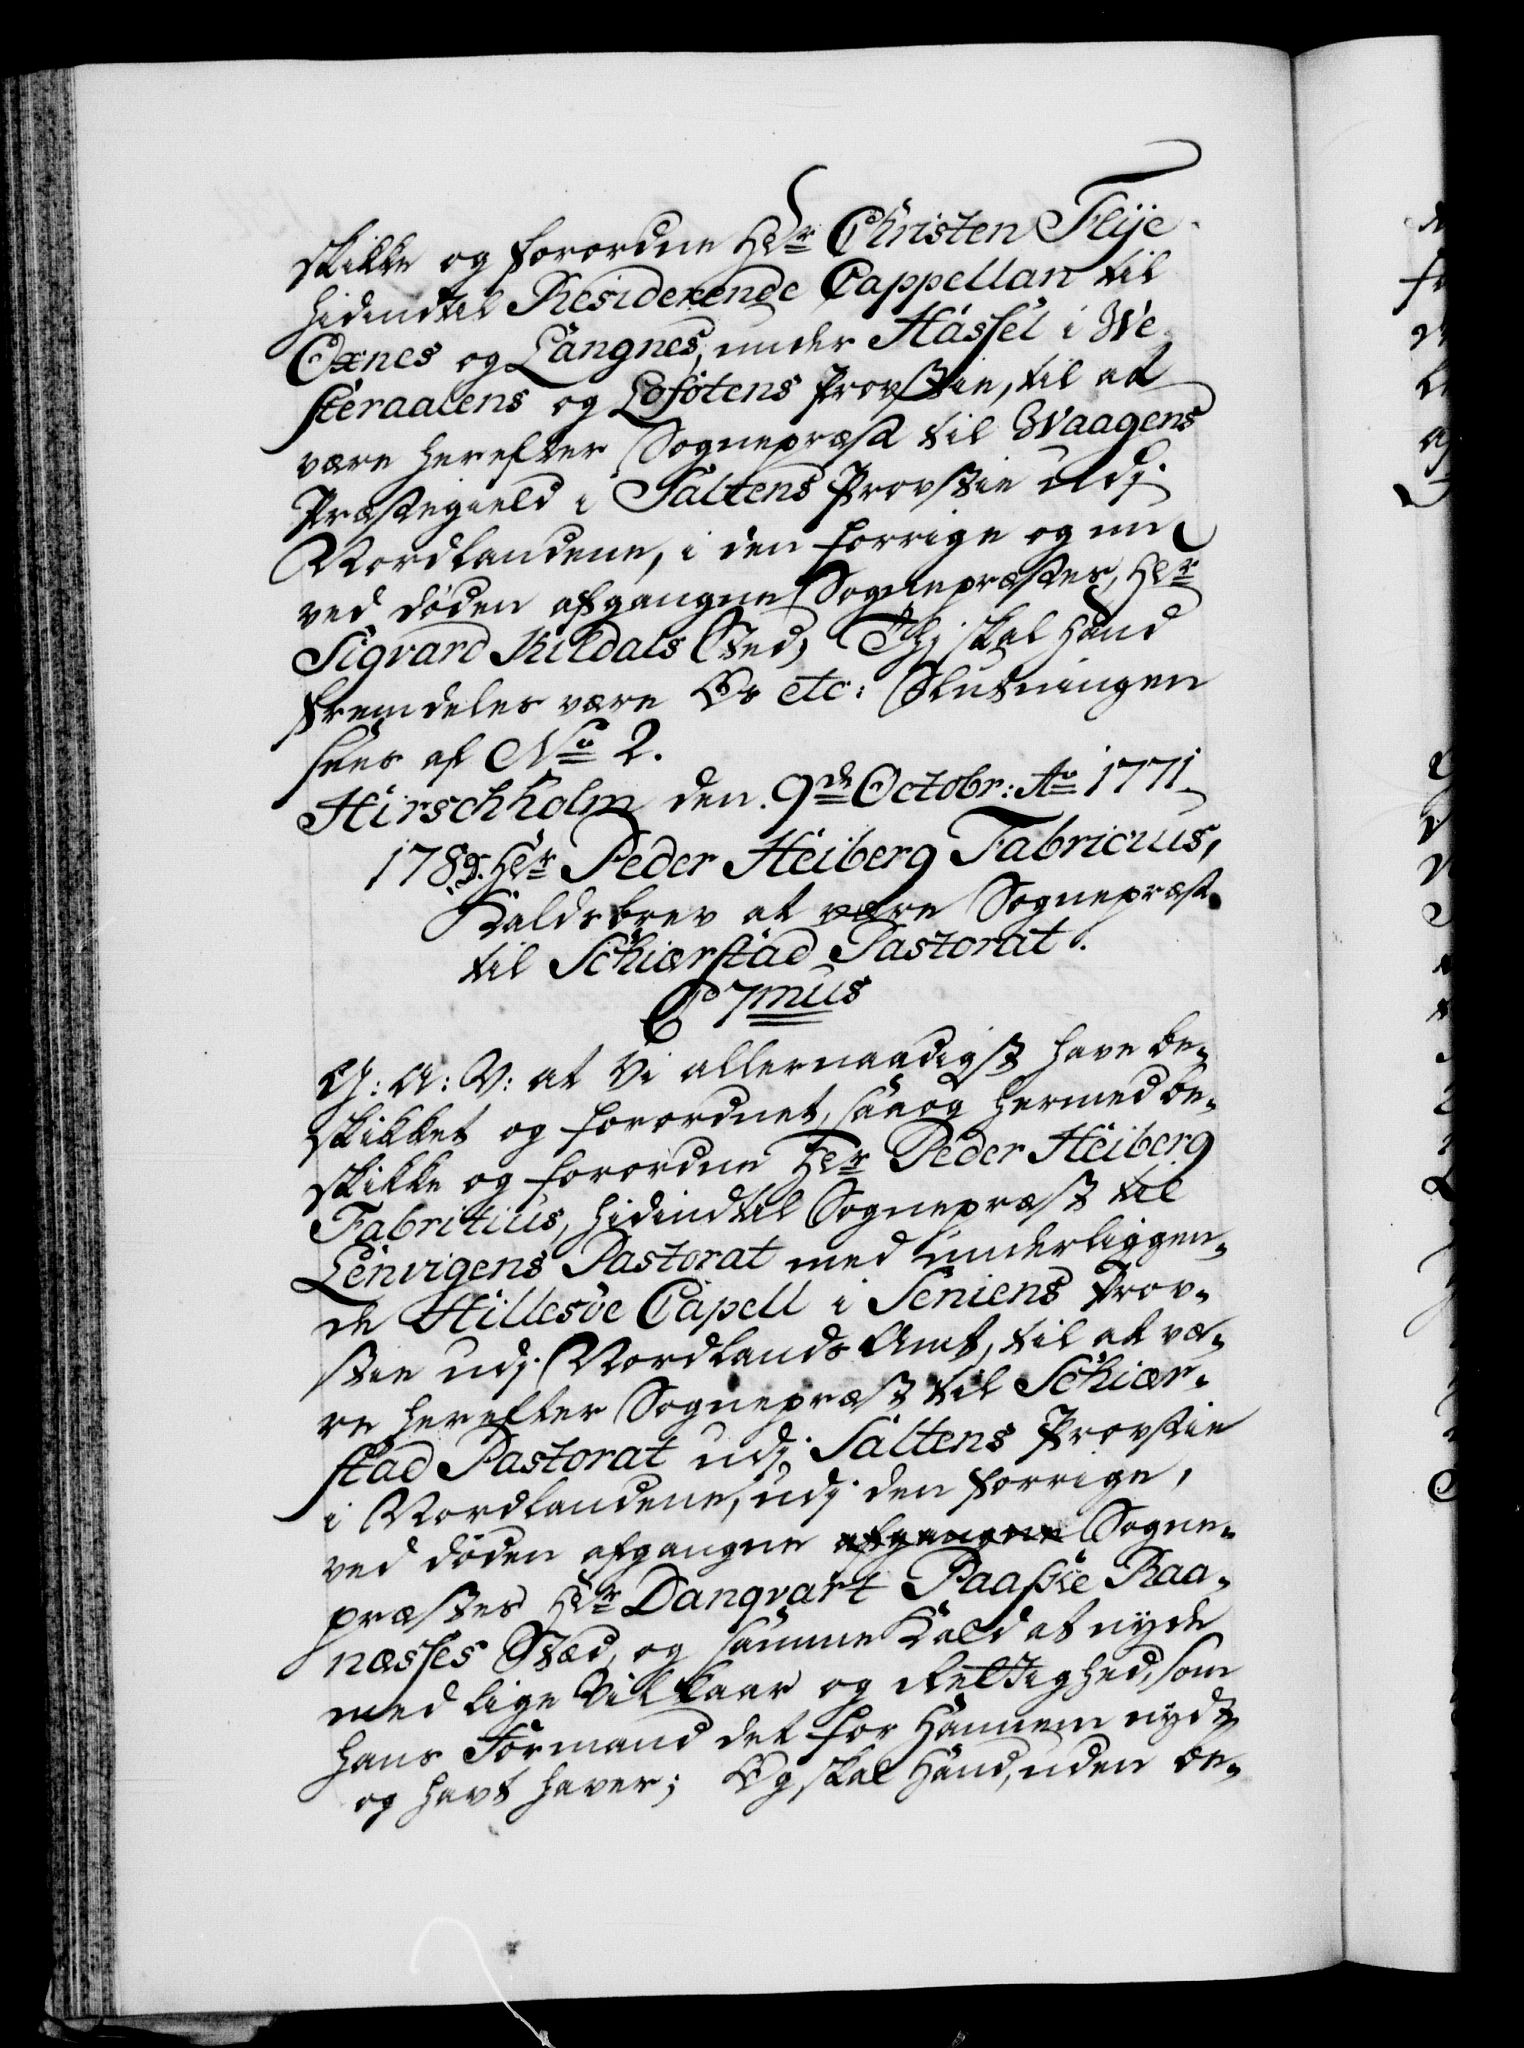 skikke og forordne Hr Christen Flÿe
hidindtil Residerende Cappellan til
Oxnes og Langnes, under Hassel i We-
steraalens og Lofotens Provstie, til at
være herefter Sognepræst til Waagens
Præstegield i Saltens Provstie udj
Nordlandene, i den forrige og nu
ved døden afgangne Sognepræstes, Hr
Sigvard Kildals Sted; Thj skal Hand
fremdeles være Os etc: Slutningen
sees af No 2.
Hirschholm den. 9de Octobr: Ao 1771
178 Hr Peder Heiberg Fabricius,
Kaldsbrev at være Sognepræst
til Schierstad Pastorat.
C 7mus
G: A: V: at Vi allernaadigst have be-
skikket og forordnet, saa og hermed be-
skikke og forordne Hr Peder Heiberg
Fabritius, hidindtil Sognepræst til
Lenvigens Pastorat med underliggen-
de Hillesøe Capell i Seniens Prov-
stie udj Nordlands Amt, til at væ-
re herefter Sognepræst til Schier-
stad Pastorat udj Saltens Provstie
i Nordlandene, udj den forrige,
ved døden afgangne afgangne Sogne-
præstes Hr Danqvart Paaske Raa-
næsses Stæd, og samme Kald at nyde
med lige Vilkaar og Rettighed, som
hans Formand det for Hannem nydt
og havt haver; Og skal Hand, uden be-